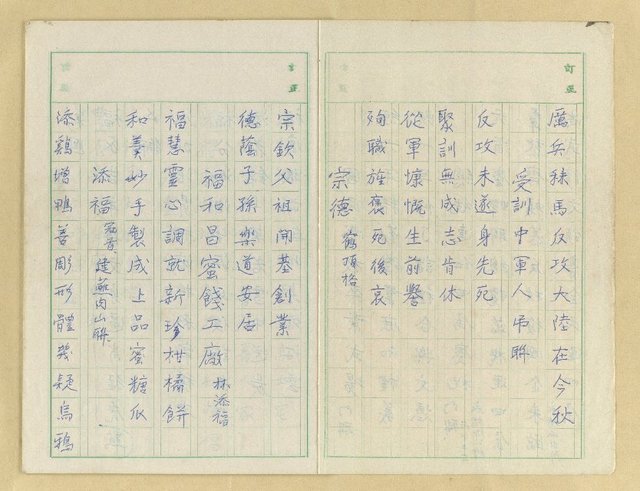 訂正
厲兵秣馬反攻大陸在今秋
受訓中軍人吊聯
反攻未遂身先死
聚訓無成志肯休
從軍慷慨生前譽
殉職旌褒死後哀
宗德 鶴頂格
宗欽父祖開基創業
德蔭子孫樂道安居
福和昌蜜餞工廠 林添福
福慧靈心調就新珍柑橘餅
和羹妙手製成上品蜜糖瓜
添福 冠首 建燕肉山聯
添鷄增鴨善彫形體幾疑烏鴉